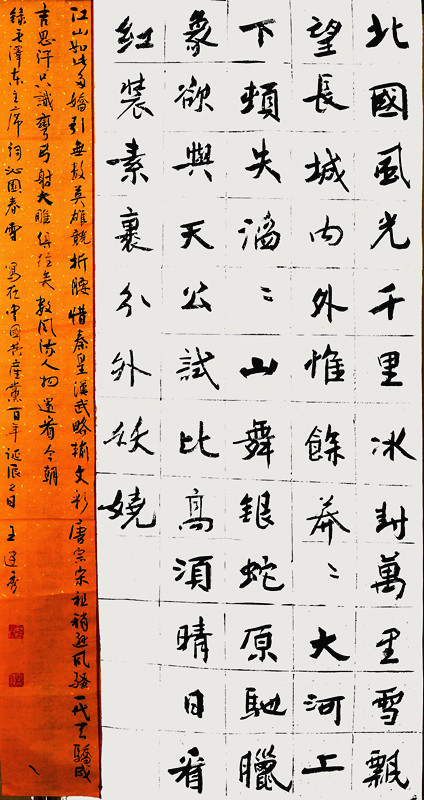 北國風光千里冰封萬里雪飄
望長城内外惟餘莽〻大河上
下頓失滔〻山舞銀蛇原馳臘
象欲與天公試比高須晴日看
紅裝素裹分外妖嬈
江山如此多嬌引無數英雄競折腰惜秦皇漢武略輸文彩唐宗宋祖稍遜風騷一代天驕成
吉思汗只識彎弓射大雕俱往矣數風流人物還看今朝
錄毛澤東主席詞沁園春雪 寫在中國共產黨百年誕辰之日 王